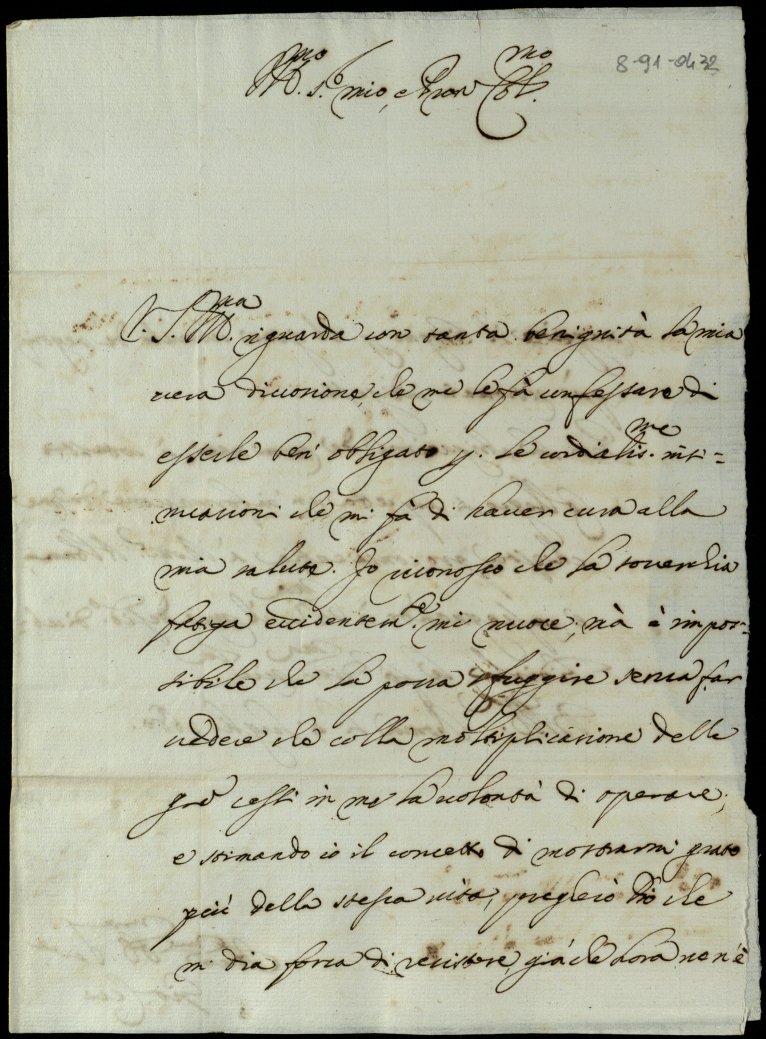 8-91-0432
Ill.mo S.r mio, e P'ron Col.mo
V. S. Ill.ma riguarda con tanta benignità la mia
vera divotione, che me le fà confessare di
esserle ben obligato p. le cordialis.me inti=
mationi che mi fà di haver cura alla
mia salute. Io riconosco che la soverchia
fatiga evidentem.e mi nuoce; mà è impos=
sibile che la possa sfuggire senza far
vedere che colla moltiplicatione delle
gre cessi in me la volontà di operare;
e stimando io il concetto di mostrarmi grato
più della stessa vita, pregherò Dio che
mi dia forza di resistere, già che hora non è